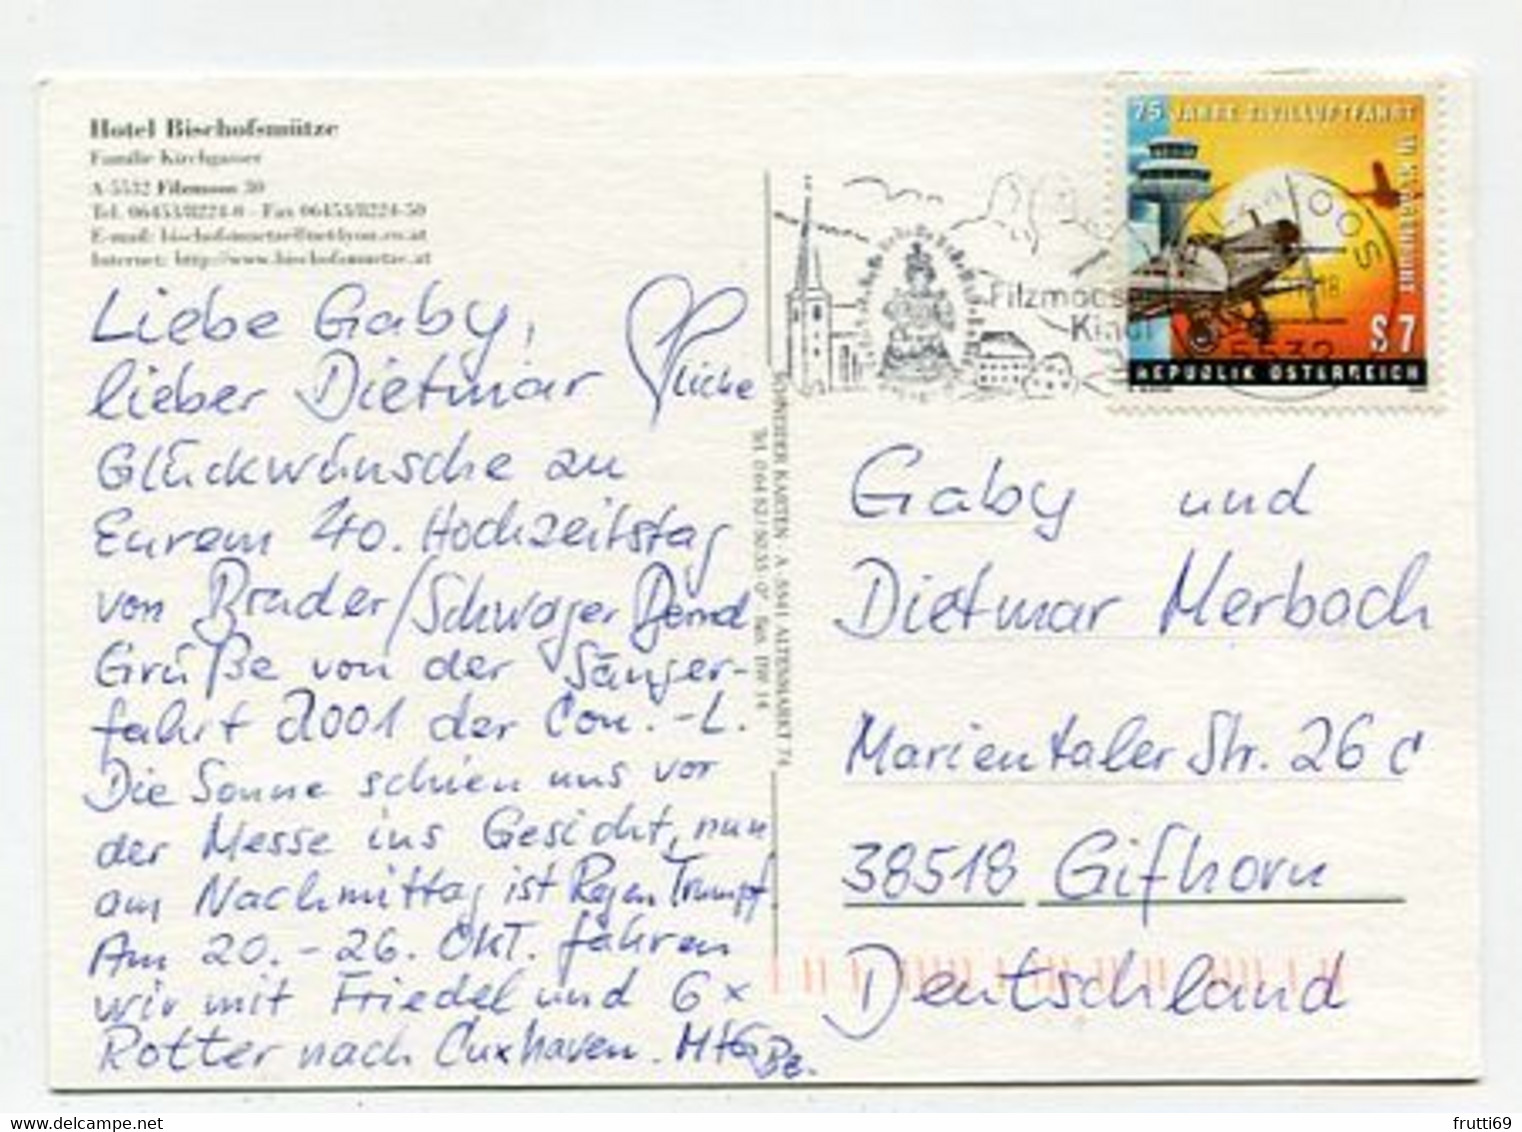 Hotel Bischofsmütze
Familie Kirchgasser
A-5532 Filzmoos 30
Tel. 06453/8224-0 - Fax 06453/8224-50
E-mail: bischofsmuetze@net4you.co.at
Internet: http://www.bischofsmuetze.at
Liebe Gaby,
lieber Dietmar
Glückwünsche zu
Eurem 40. Hochzeitstag
von Bruder/Schwager Bernd
Grüße von der Sänger-
fahrt 2001 der Con.-L.
Die Sonne schien uns vor
der Messe ins Gesicht, nun
am Nachmittag ist Regen Trumpf
Am 20.-26. Okt. fahren
wir mit Friedel und 6x
Rotter nach Cuxhaven. MHG
Be.
SCHNEIDER KARTEN · A-5541 ALTENMARKT 74
Tel. 06452/5035-0
Fax DW 14
Filzmooser
Kindl
5532
75 JAHRE ZIVILLUFTFAHRT
S 7
REPUBLIK ÖSTERREICH
Gaby und
Dietmar Merbach
Marientaler Str. 26 c
38518 Gifhorn
Deutschland
frutti69